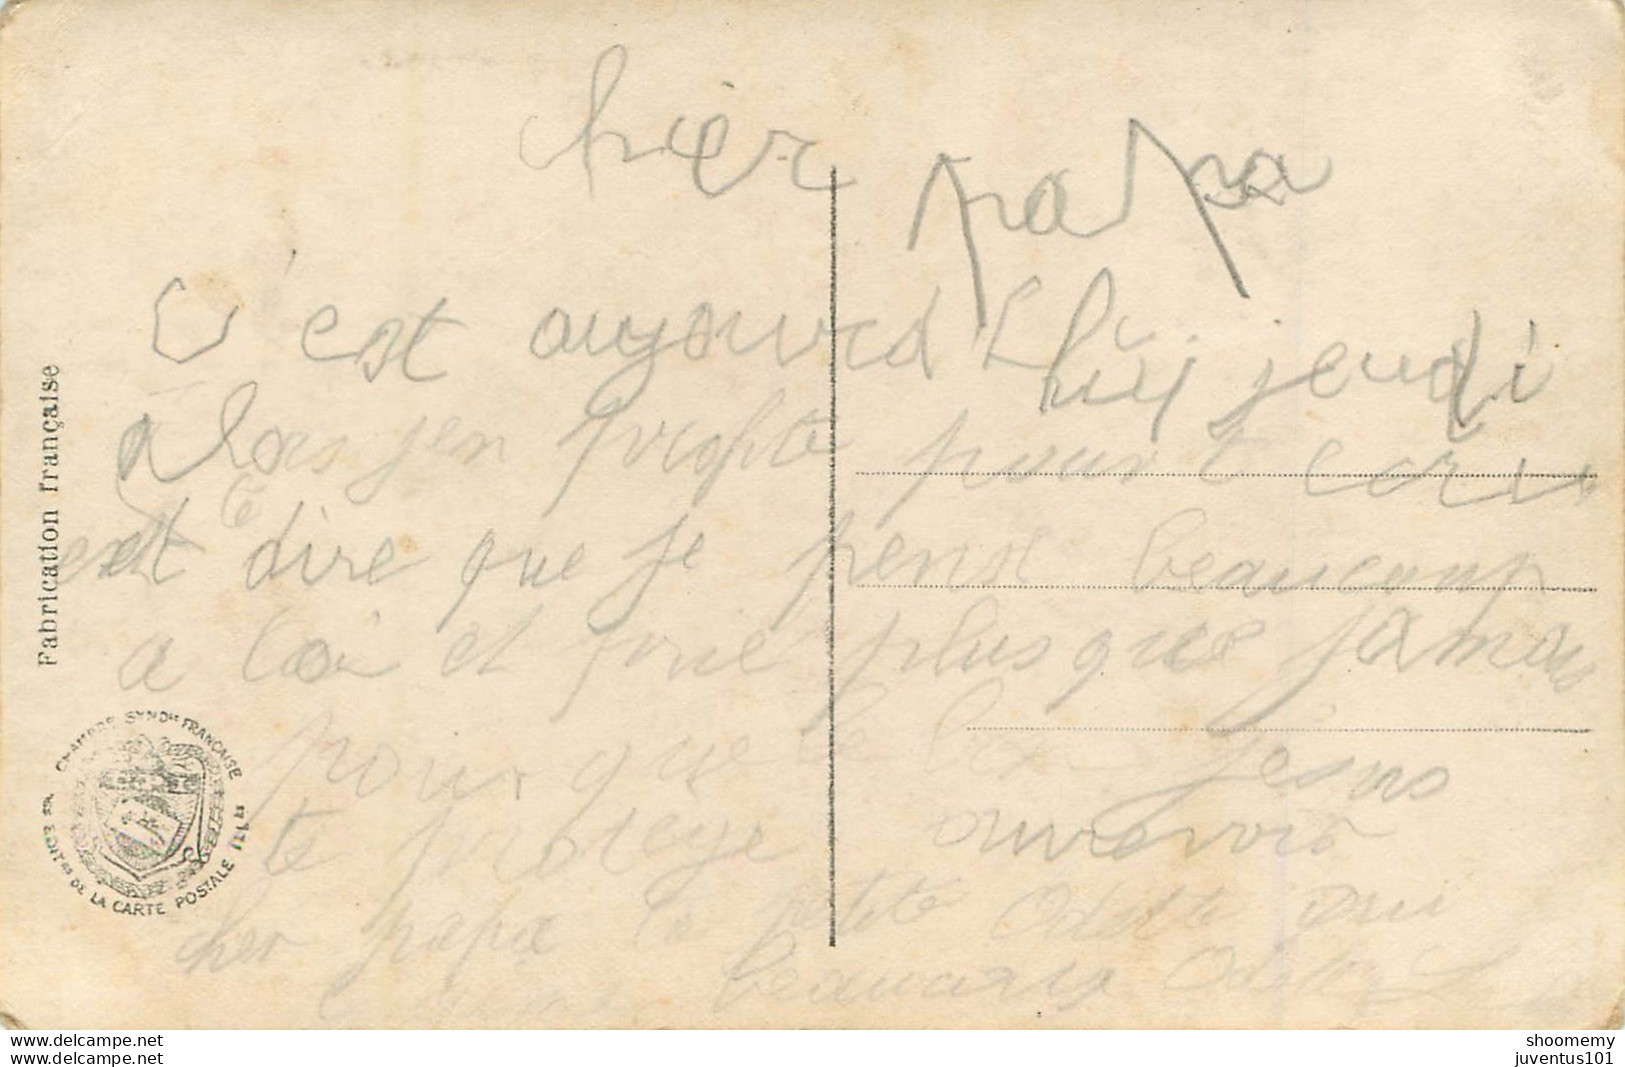 cher papa
C'est aujourd'huij jeudi
alors jen profite pour t ecrir
et te dire que je pense beaucoup
a toi et prie plus que jamais
pour que le petit jesus
te protege aurevoir
cher papa ta petite Odette qui
t'aime beaucoup Odette
Fabrication française
CHAMBRE SYND.le FRANÇAISE
DES EDIT.RS DE LA CARTE POSTALE
delcampe.net
delcampe.net
shoomemy
juventus101